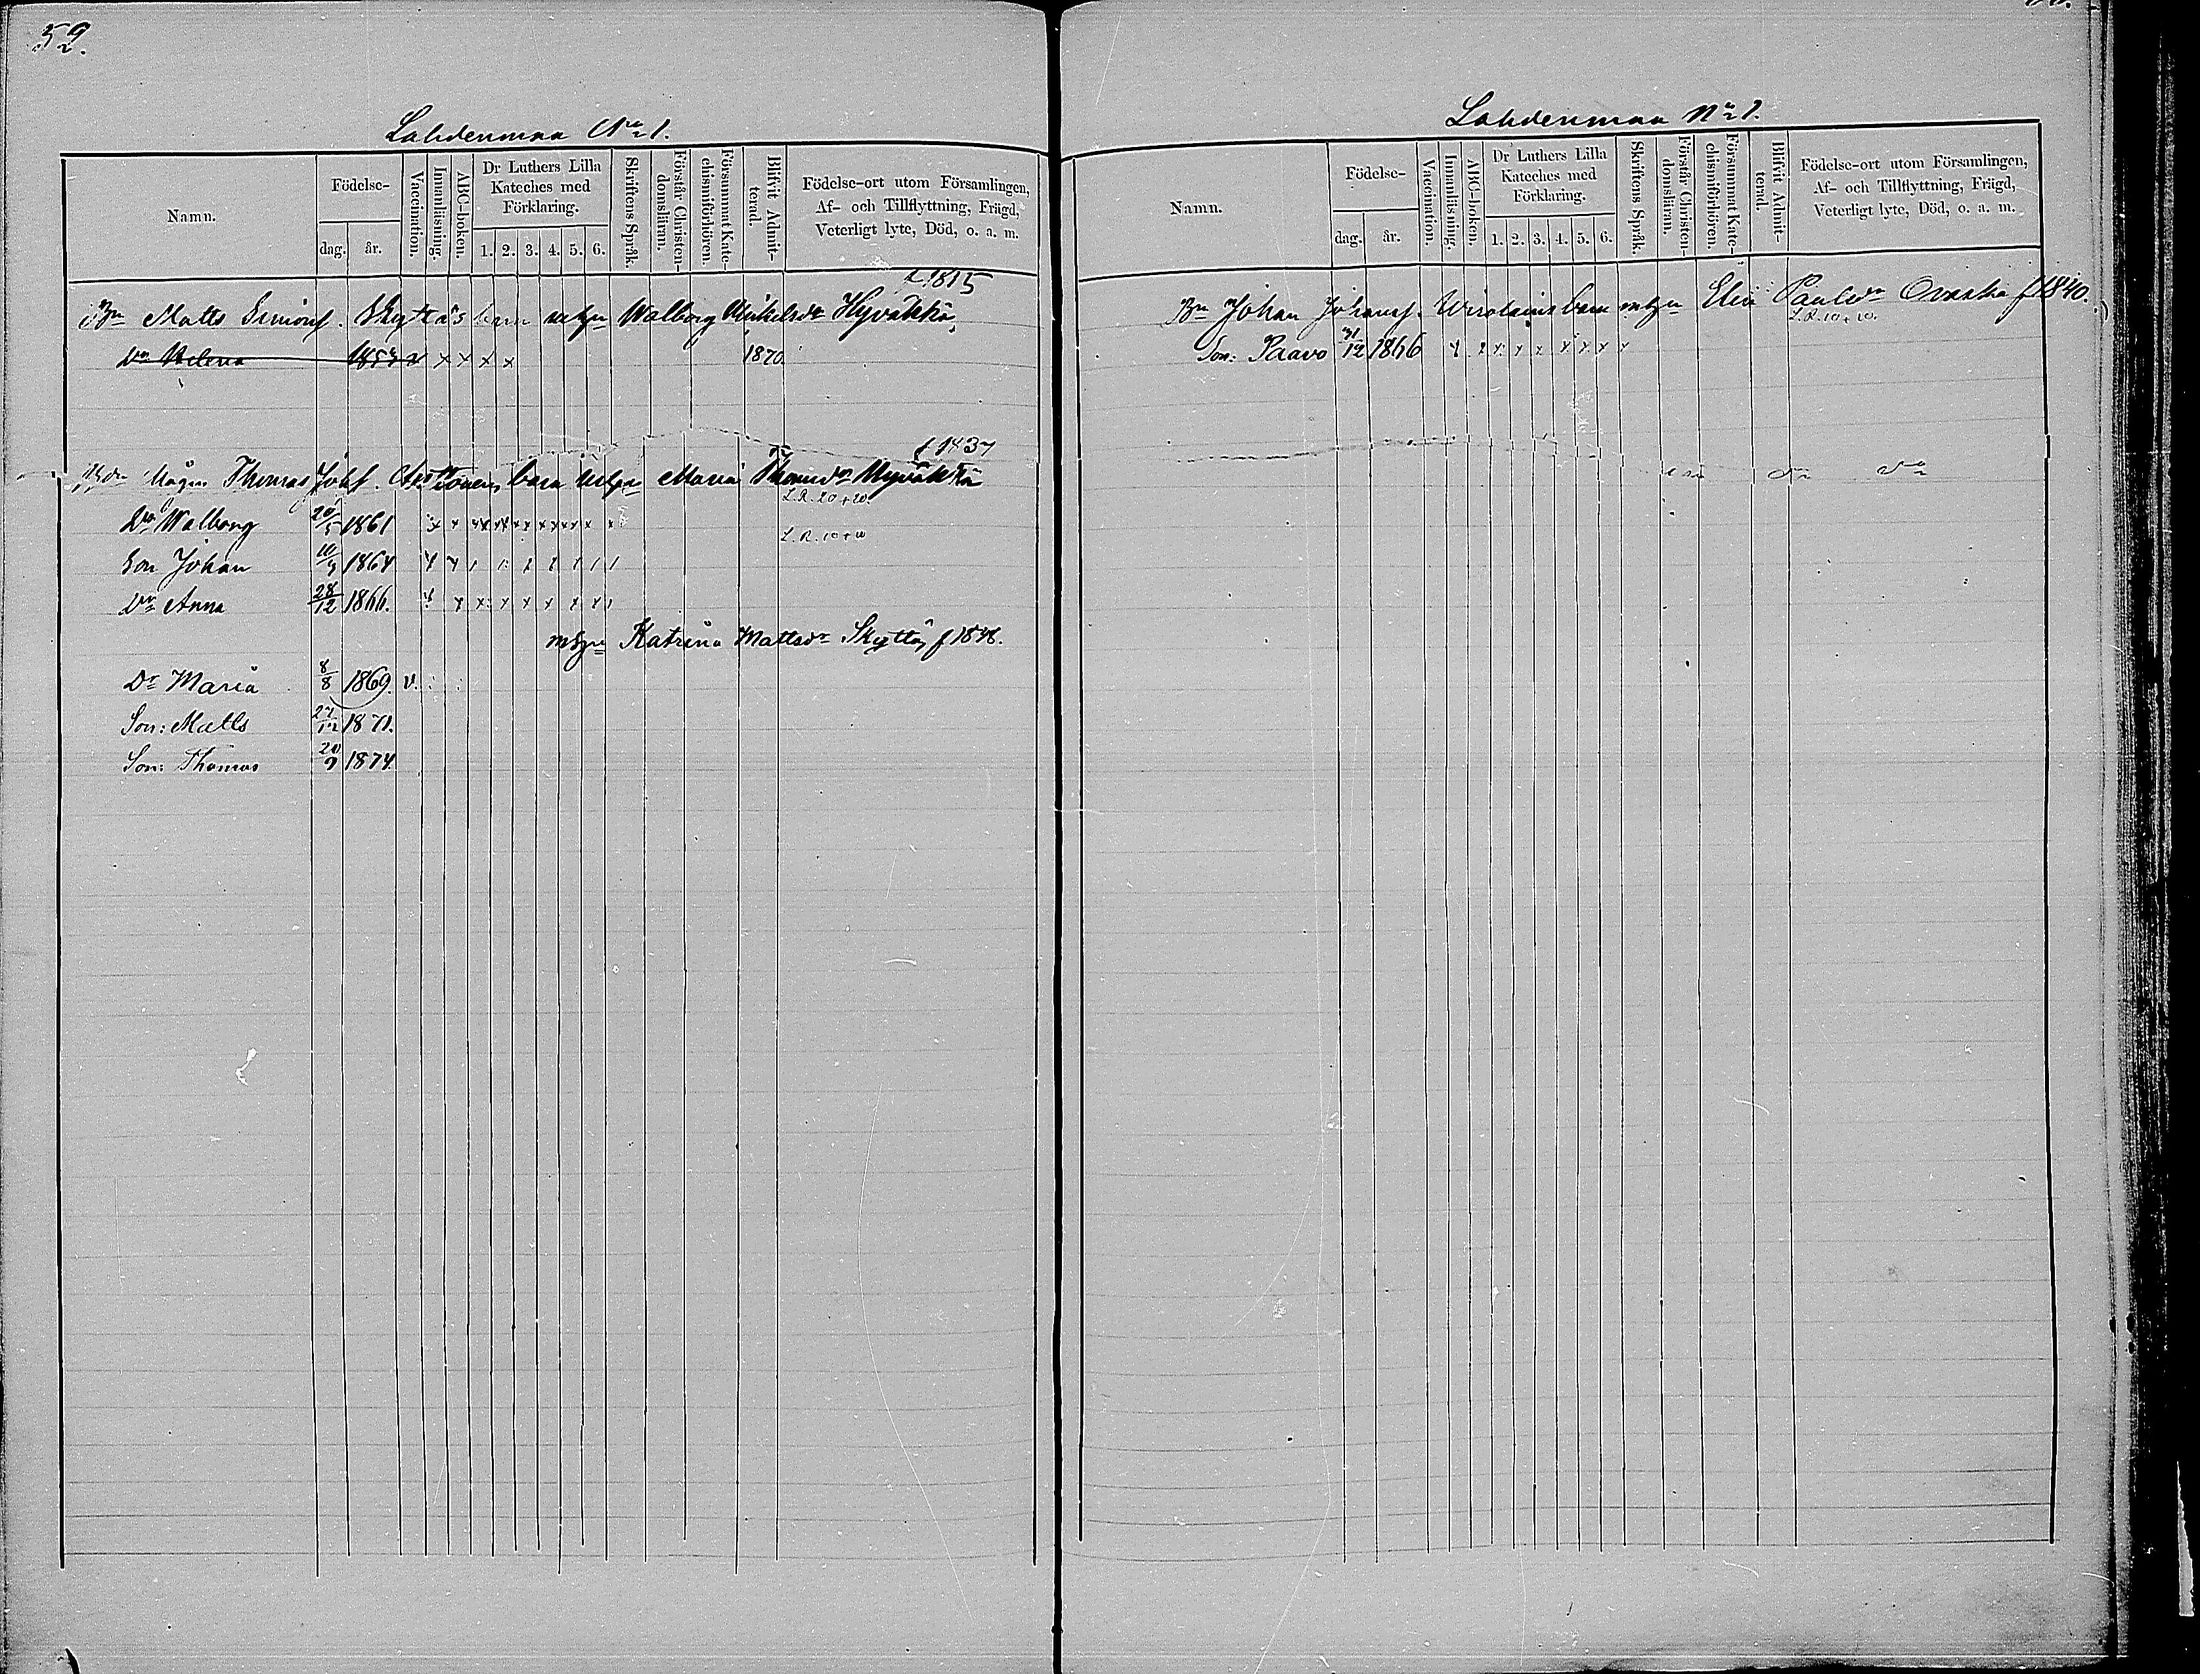 52.
Lahdenmaa No 1.
Namn.
Födelse-
dag.
år.
Vaccination.
Innanläsning.
ABC-boken.
Dr Luthers Lilla
Kateches med
Förklaring.
1. 2. 3. 4. 5. 6.
Skriftens Språk.
Förstår Christen-
domsläran.
Försummat Kate-
chismiförhören.
Blifvit Admit-
terad.
Födelse-ort utom Församlingen,
Af- och Tillflyttning, Frägd,
Veterligt lyte, Död, o. a. m.
f. 1815
Bn Matts Simonsf. Skyttä's barn m hn Walborg Mickelsdr Hyväkkä
Dr Helena 1853 v x x x x 1870
f 1837
Mågen Thomas Johf. barn Maria Thomsdr Hyväkkä
L.R. 20+20.
Dr Walborg 20/5 1861
L.R. 10+10
Son Johan 10/9 1864
Dr Anna 28/12 1866.
Katrina Mattsdr Skyttä f 1848.
Dr Maria 8/8 1869 v.
Son: Matts 27/12 1871.
Son: Thomas 20/9 1874.
Lahdenmaa No 1.
Namn.
Födelse-
dag.
år.
Vaccination.
Innanläsning.
ABC-boken.
Dr Luthers Lilla
Kateches med
Förklaring.
1. 2. 3. 4. 5. 6.
Skriftens Språk.
Förstår Christen-
domsläran.
Försummat Kate-
chismiförhören.
Blifvit Admit-
terad.
Födelse-ort utom Församlingen,
Af- och Tillflyttning, Frägd,
Veterligt lyte, Död, o. a. m.
Bn Johan Johansf. Wirolainis barn Elin Paulsdr Ovaska f 1840.
L.R. 10+10.
Son: Paavo 31/12 1866